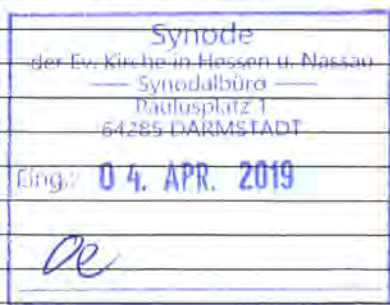 Synode
der Ev. Kirche in Hessen u. Nassau
— Synodalbüro —
Paulusplatz 1
64285 DARMSTADT
Eing.: 04. APR. 2019